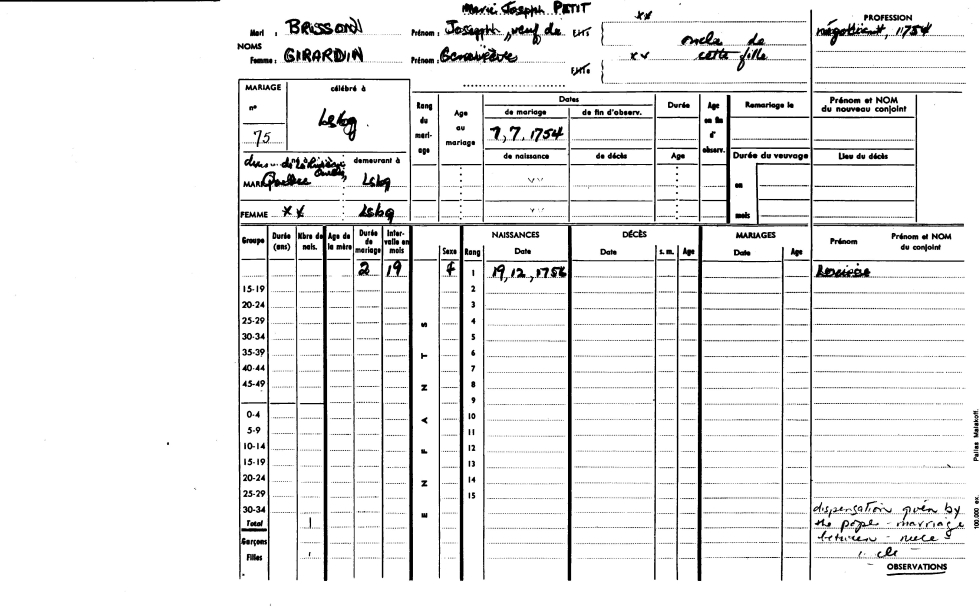 Marie Joseph PETIT
Mari : BRISSON Prénom : Joseph, veuf de FILS xx
NOMS
Femme : GIRARDIN Prénom : Geneviève FILLE xx
oncle de
cette fille
PROFESSION
négotiant, 1754
MARIAGE célébré à
n°
75 Lsbg.
né à demeurant à
MARI Quebec Lsbg
FEMME xx Lsbg
Rang du mari- age
Age au mariage
Dates
de mariage de fin d'observ.
7, 7, 1754
de naissance de décès
vv
vv
Durée
Age
Age en fin d' observ.
Remariage le
Durée du veuvage
en
mois
Prénom et NOM du nouveau conjoint
Lieu du décès
Groupe Durée (ans) Nbre de nais. Age de la mère Durée de mariage Inter- valle en mois
ENFANTS
Sexe Rang
NAISSANCES Date
DÉCÈS Date s. m. Age
MARIAGES Date Age
Prénom Prénom et NOM du conjoint
2 19 f 1 19, 12, 1756
15-19 2
20-24 3
25-29 4
30-34 5
35-39 6
40-44 7
45-49 8
9
0-4 10
5-9 11
10-14 12
15-19 13
20-24 14
25-29 15
30-34
Total 1
Garçons
Filles
dispensation given by
the pope - marriage
between - niece &
OBSERVATIONS
100.000 ex. Pairas Malakoff.